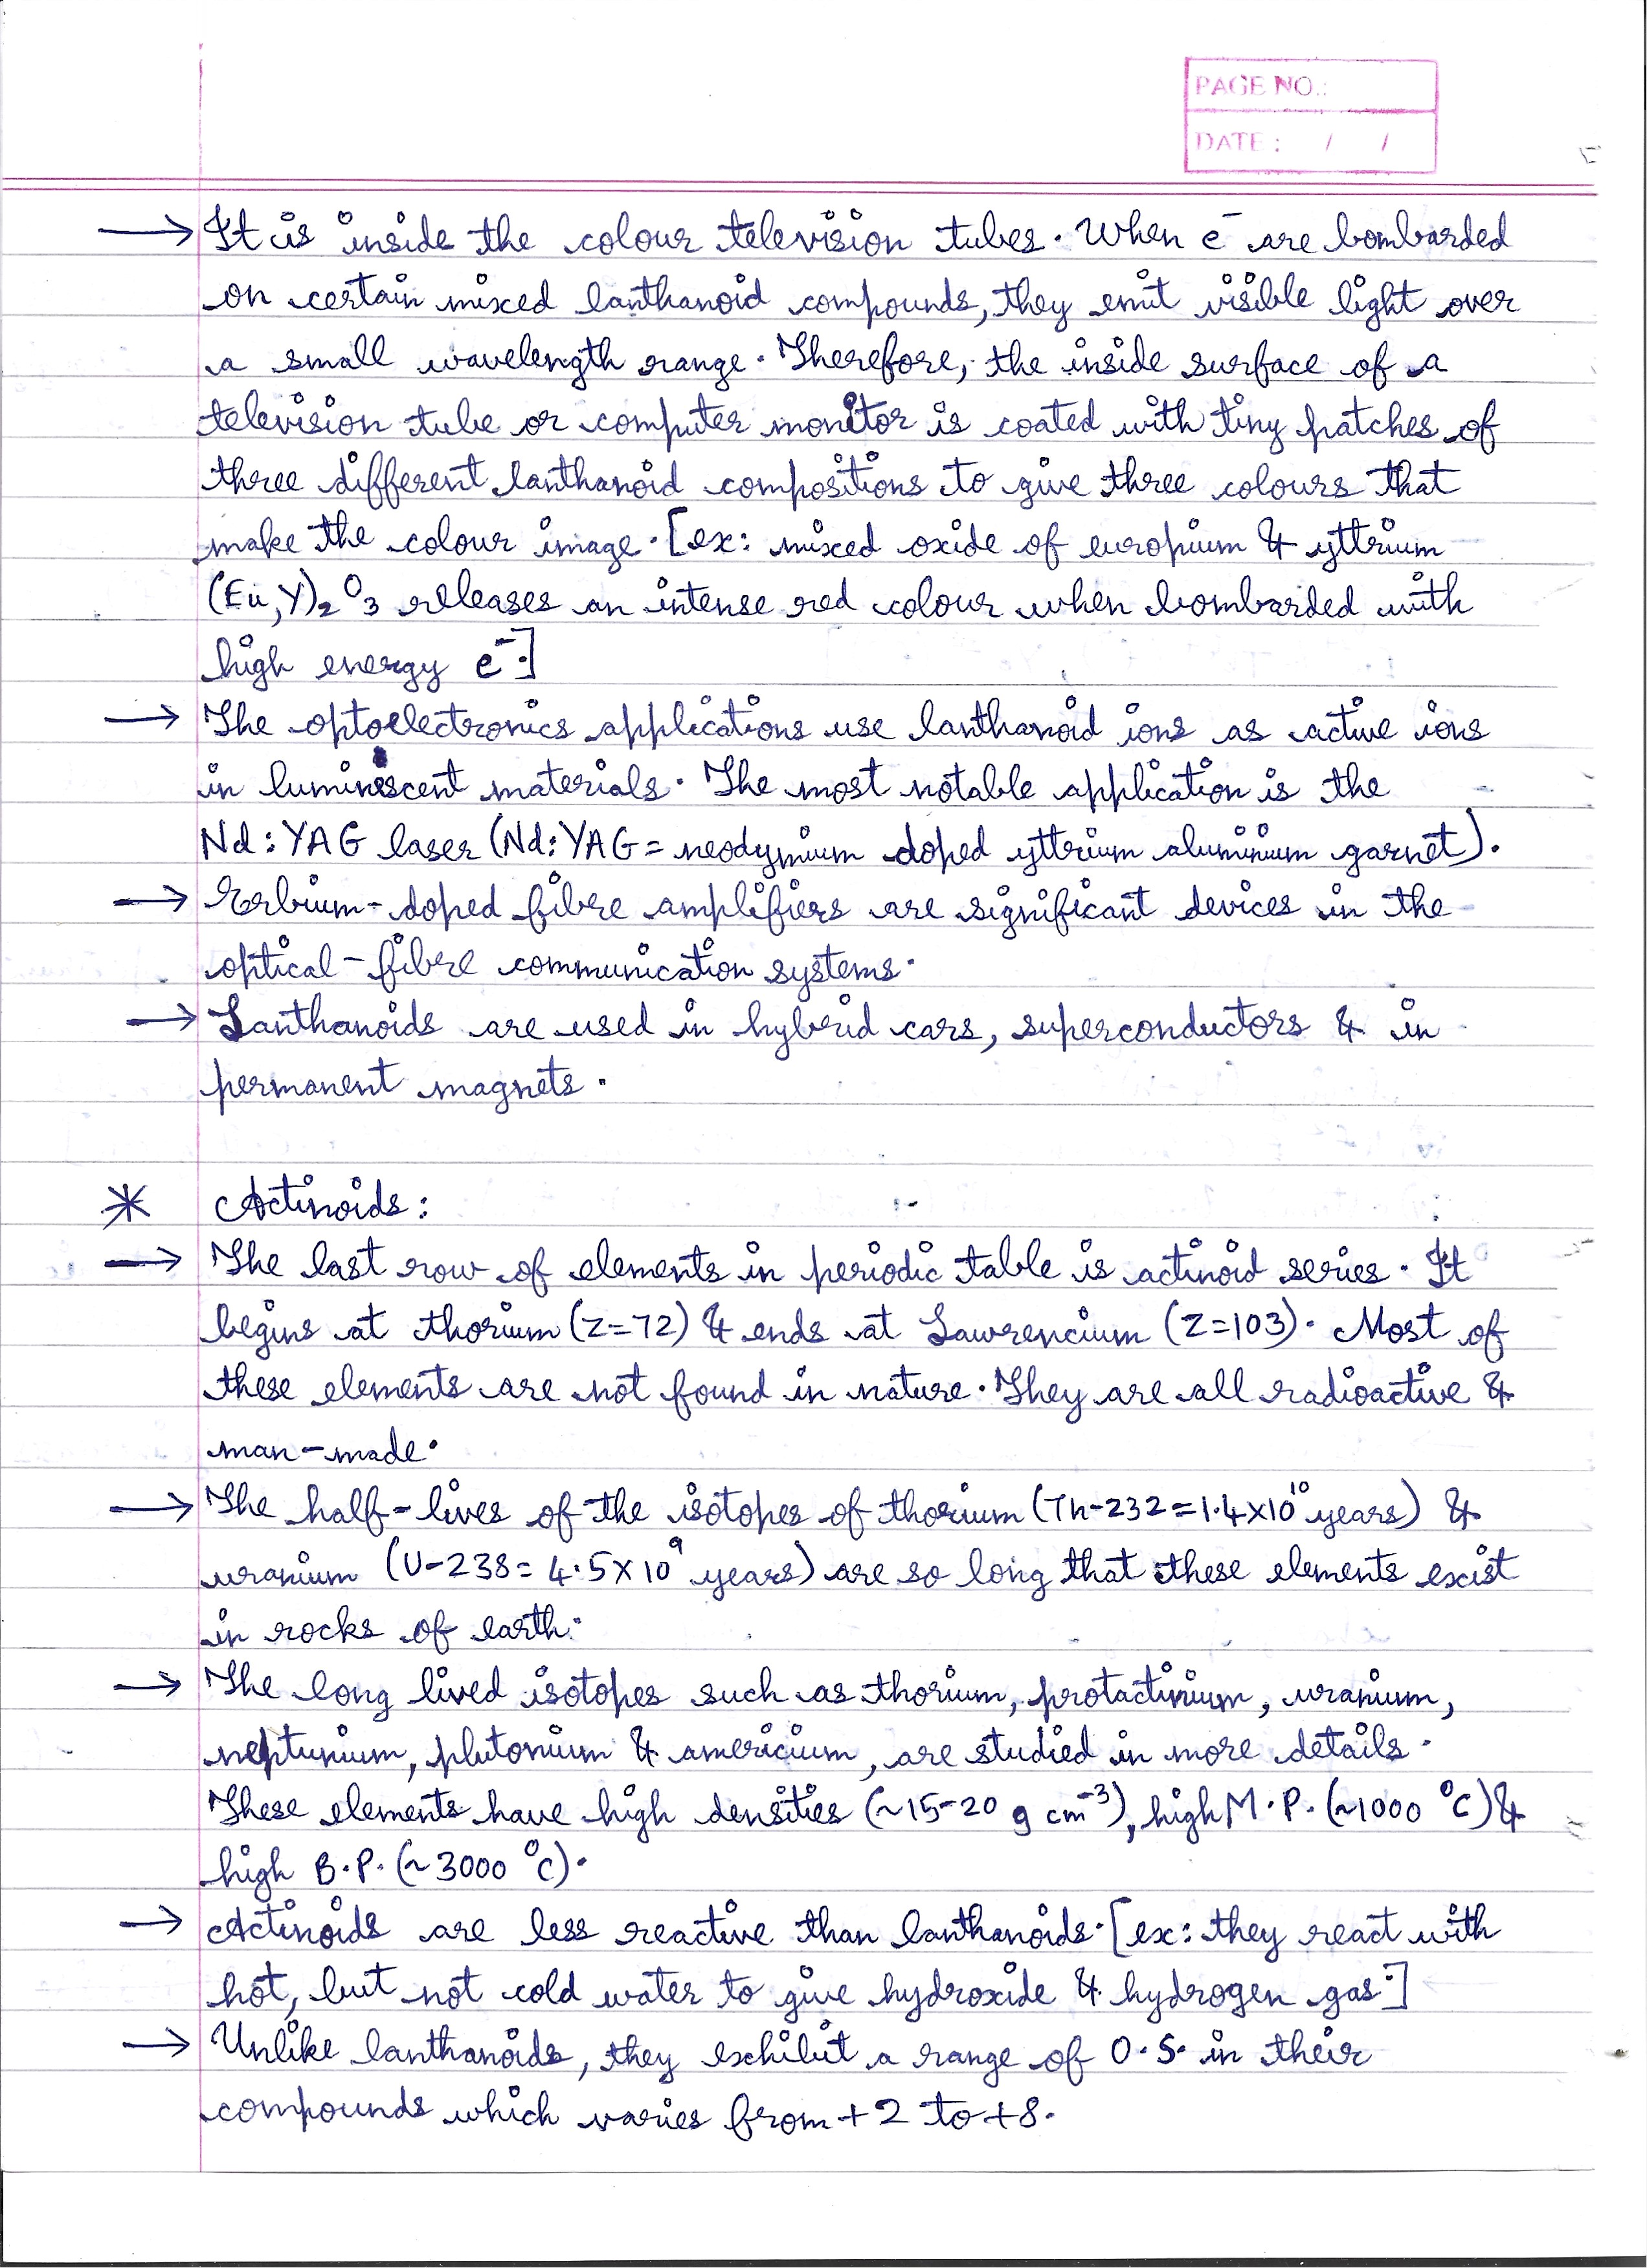 PAGE NO.:
DATE: / /
→ It is inside the colour television tubes. When e⁻ are bombarded
on certain mixed lanthanoid compounds, they emit visible light over
a small wavelength range. Therefore, the inside surface of a
television tube or computer monitor is coated with tiny patches of
three different lanthanoid compositions to give three colours that
make the colour image. [ex: mixed oxide of europium & yttrium
(Eu,Y)₂O₃ releases an intense red colour when bombarded with
high energy e⁻.]
→ The optoelectronics applications use lanthanoid ions as active ions
in luminiscent materials. The most notable application is the
Nd:YAG laser (Nd:YAG = neodymium doped yttrium aluminium garnet).
→ Erbium-doped fibre amplifiers are significant devices in the
optical-fibre communication systems.
→ Lanthanoids are used in hybrid cars, superconductors & in
permanent magnets.
* Actinoids:
→ The last row of elements in periodic table is actinoid series. It
begins at thorium (Z=72) & ends at Lawrencium (Z=103). Most of
these elements are not found in nature. They are all radioactive &
man-made.
→ The half-lives of the isotopes of thorium (Th-232=1.4×10¹⁰ years) &
uranium (U-238= 4.5×10⁹ years) are so long that these elements exist
in rocks of earth.
→ The long lived isotopes such as thorium, protactinium, uranium,
neptunium, plutonium & americium, are studied in more details.
These elements have high densities (~15-20 g cm⁻³), high M.P. (~1000 °C) &
high B.P. (~3000 °C).
→ Actinoids are less reactive than lanthanoids. [ex: they react with
hot, but not cold water to give hydroxide & hydrogen gas.]
→ Unlike lanthanoids, they exhibit a range of O.S. in their
compounds which varies from +2 to +8.